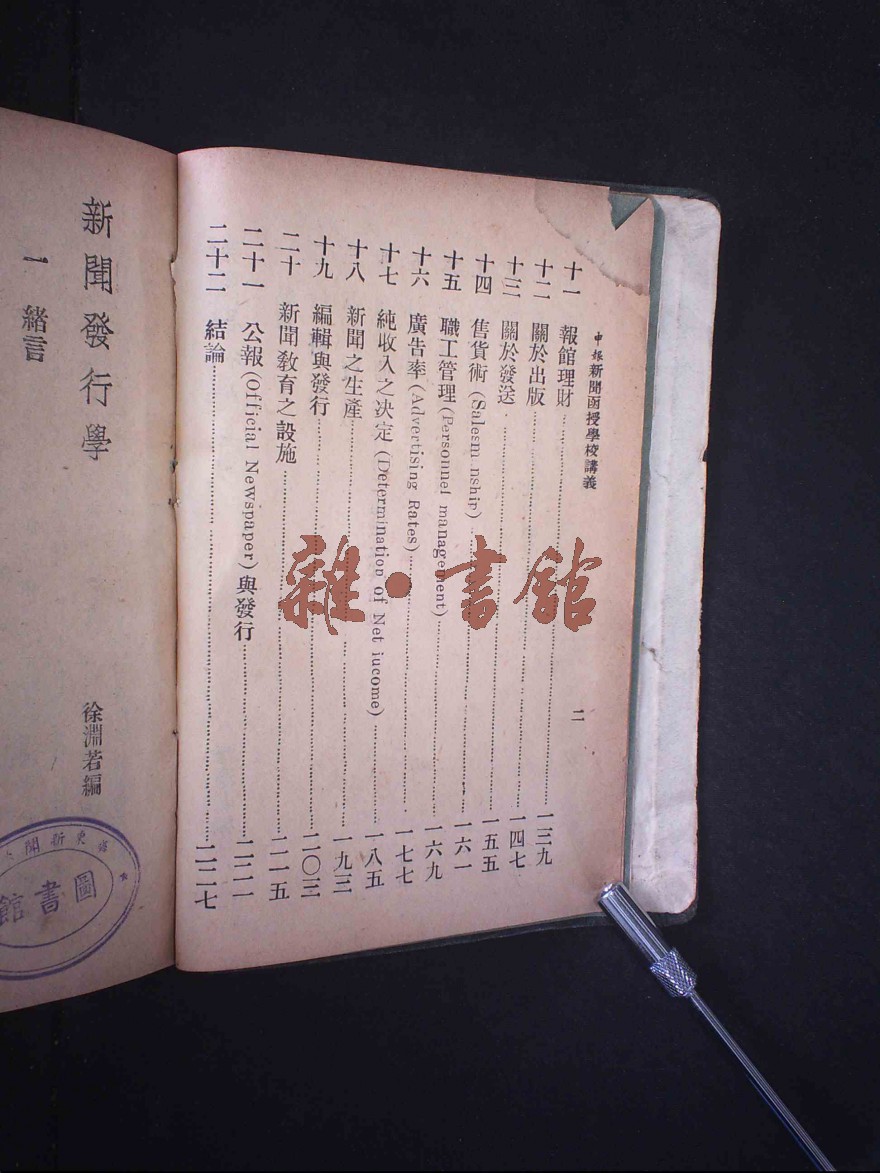 申報新聞函授學校講義
二
十一 報館理財 一三九
十二 關於出版 一四七
十三 關於發送 一五五
十四 售貨術 (Salesm nship) 一六一
十五 職工管理 (Personnel management) 一六九
十六 廣告率 (Advertising Rates) 一七七
十七 純收入之決定 (Determination of Net iucome) 一八五
十八 新聞之生產 一九三
十九 編輯與發行 二〇三
二十 新聞教育之設施 二一五
二十一 公報 (Official Newspaper) 與發行 二二一
二十二 結論 二二七
新聞發行學
徐淵若編
一 緒言
新聞
圖書館
雜·書館